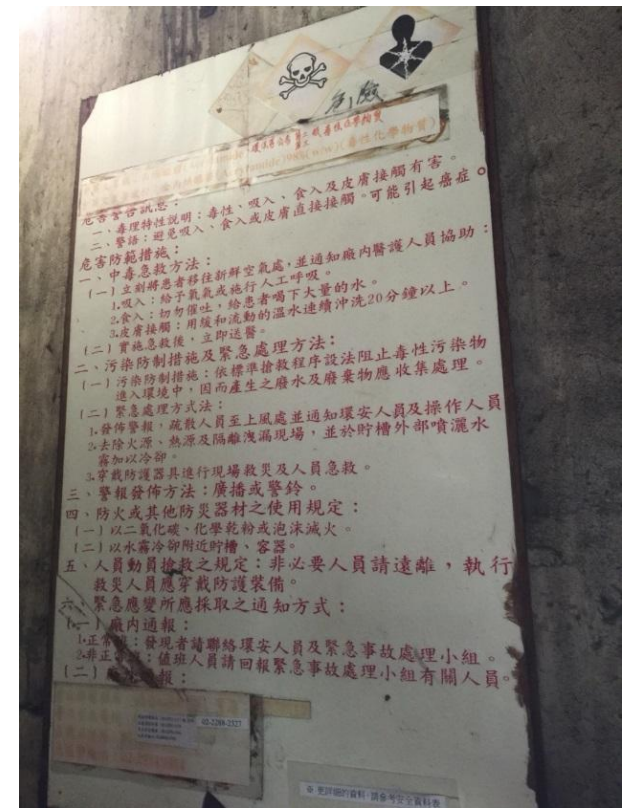 危險
危害警告訊息：
一、毒理特性說明：毒性、吸入、食入及皮膚接觸有害。
二、警語：避免吸入、食入或皮膚直接接觸。可能引起癌症。
危害防範措施：
一、中毒急救方法：
(一)立刻將患者移往新鮮空氣處，並通知廠內醫護人員協助：
1.吸入：給予氧氣或施行人工呼吸。
2.食入：切勿催吐，給患者喝下大量的水。
3.皮膚接觸：用緩和流動的溫水連續沖洗20分鐘以上。
(二)實施急救後，立即送醫。
二、污染防制措施及緊急處理方法：
(一)污染防制措施：依標準搶救程序設法阻止毒性污染物
進入環境中，因而產生之廢水及廢棄物應收集處理。
(二)緊急處理方式法：
1.發佈警報，疏散人員至上風處並通知環安人員及操作人員
2.去除火源、熱源及隔離洩漏現場，並於貯槽外部噴灑水
霧加以冷卻。
3.穿戴防護器具進行現場救災及人員急救。
三、警報發佈方法：廣播或警鈴。
四、防火或其他防災器材之使用規定：
(一)以二氧化碳、化學乾粉或泡沫滅火。
(二)以水霧冷卻附近貯槽、容器。
五、人員動員搶救之規定：非必要人員請遠離，執行
救災人員應穿戴防護裝備。
六、緊急應變所應採取之通知方式：
(一)廠內通報：
1.正常班：發現者請聯絡環安人員及緊急事故處理小組。
2.非正 ：值班人員請回報緊急事故處理小組有關人員。
(二) 報：
※ 更詳細的資料，請參考安全資料表